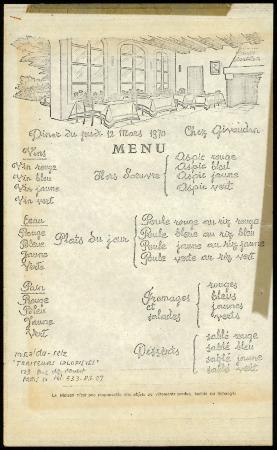 Diner du jeudi 12 Mars 1970 Chez Givaudan
MENU
Vins
Vin rouge
Vin bleu
Vin jaune
Vin vert
Hors d'oeuvre
Aspic rouge
Aspic bleu
Aspic jaune
Aspic vert
Eau
Rouge
Bleue
Jaune
Verte
Plats du jour
Poule rouge au riz rouge
Poule bleue au riz bleu
Poule jaune au riz jaune
Poule verte au riz vert
Pain
Rouge
Bleu
Jaune
Vert
Fromages
et
salades
rouges
bleus
jaunes
verts
Desserts
sablé rouge
sablé bleu
sablé jaune
sablé vert
miralda-selz
"TRAITEURS COLORISTES"
PARIS
La Maison n'est pas responsable des objets ou vêtements perdus, tachés ou échangés